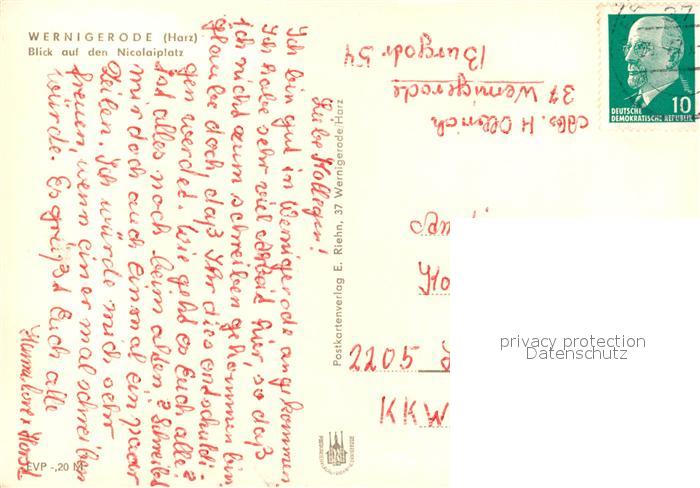 WERNIGERODE (Harz)
Blick auf den Nicolaiplatz
Liebe Kollegen!
Ich bin gut in Wernigerode angekommen
Ich habe sehr viel Arbeit hier, so daß
ich nicht zum schreiben gekommen bin
glaube doch, daß Ihr dies entschuldi-
gen werdet. Wie geht es Euch alle?
Ist alles noch beim alten? Schreibt
mir doch auch einmal ein paar
Zeilen. Ich würde mich sehr
freuen, wenn einer mal schreiben
würde. Es grüßt Euch alle
Horst
EVP -,20 M
Postkartenverlag E. Riehn, 37 Wernigerode/Harz
Abs. H
37 Wernigerode
Burgstr 54
DEUTSCHE
DEMOKRATISCHE REPUBLIK
10
2205
KKW
privacy protection
Datenschutz